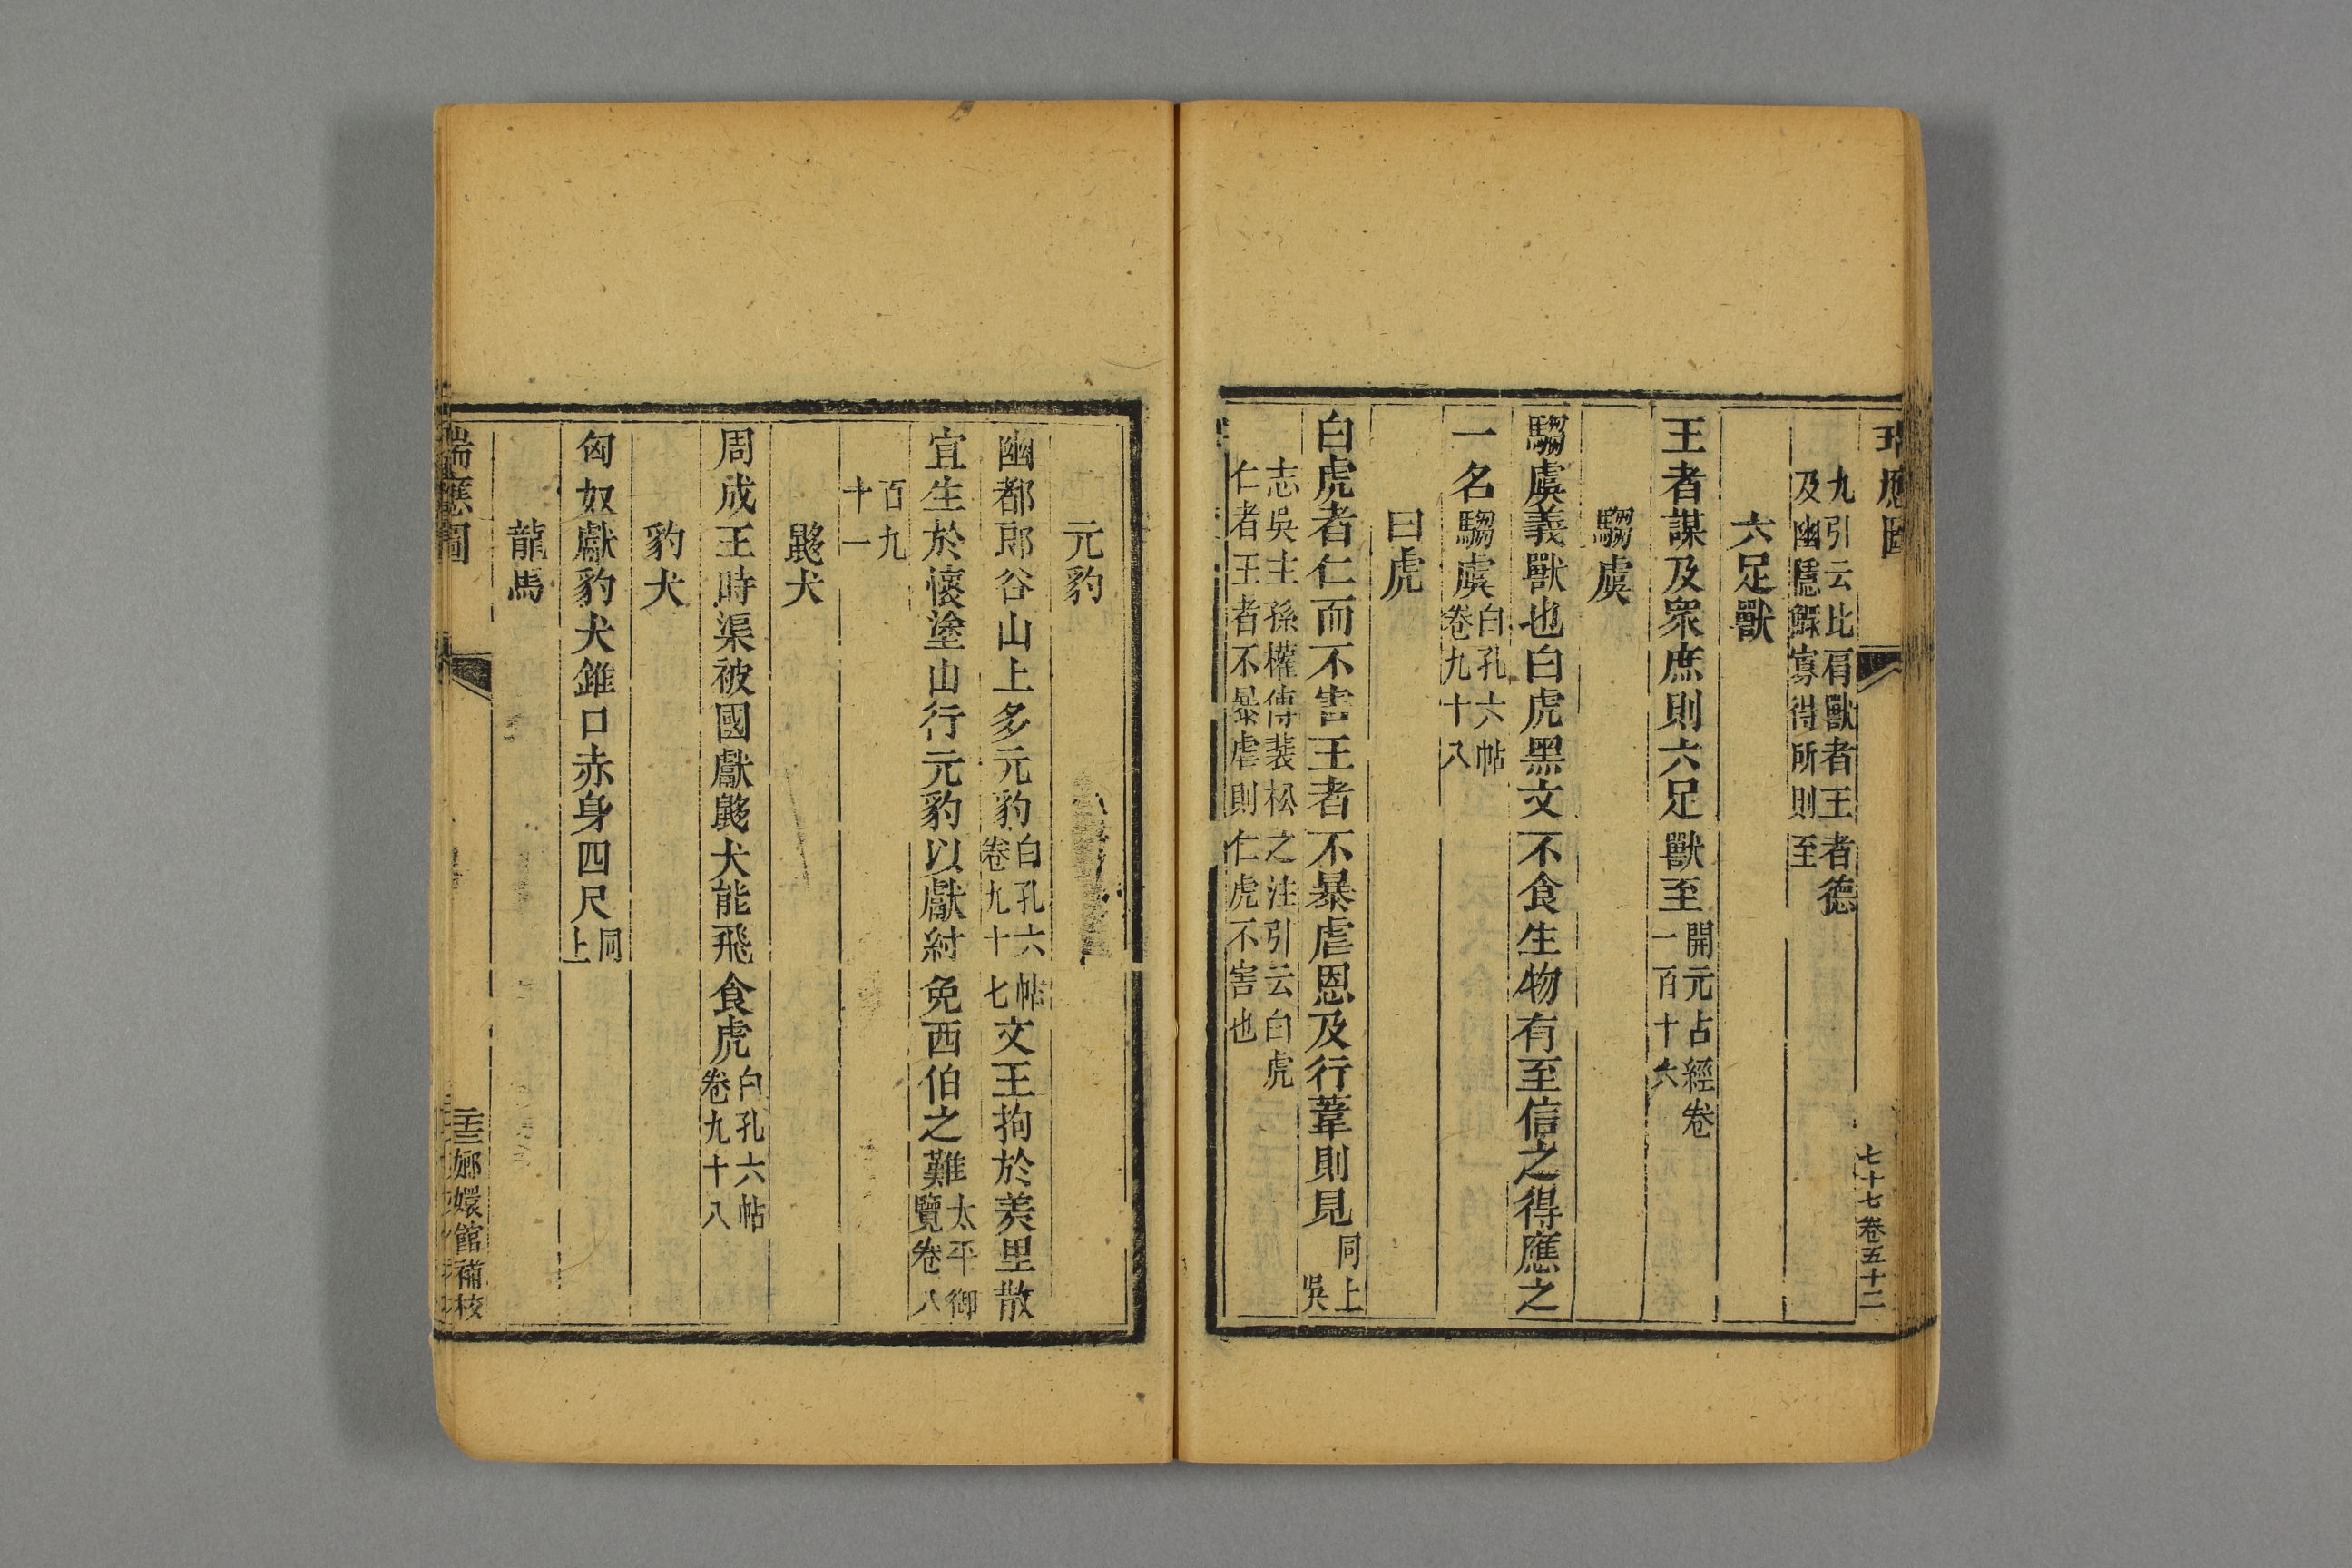 應
七十七卷五十二
九引云比肩獸者王者德
及幽隱鰥寡得所則至
六足獸
王者謀及衆庶則六足獸至開元占經卷
一百十六
騶虞
騶虞義獸也白虎黑文不食生物有至信之得應之
一名騶虞白孔六帖
卷九十八
白虎
白虎者仁而不害王者不暴虐恩及行葦則見同上
吳
志吳主孫權傳裴松之注引云白虎
仁者王者不暴虐則仁虎不害也
元豹
幽都郎谷山上多元豹白孔六帖
卷九十七文王拘於羑里散
宜生於懷塗山行元豹以獻紂免西伯之難太平御
覽卷八
百九
十一
鼨犬
周成王時渠被國獻鼨犬能飛食虎白孔六帖
卷九十八
豹犬
匈奴獻豹犬錐口赤身四尺同
上
龍馬
瑞應圖
嫏嬛館補校